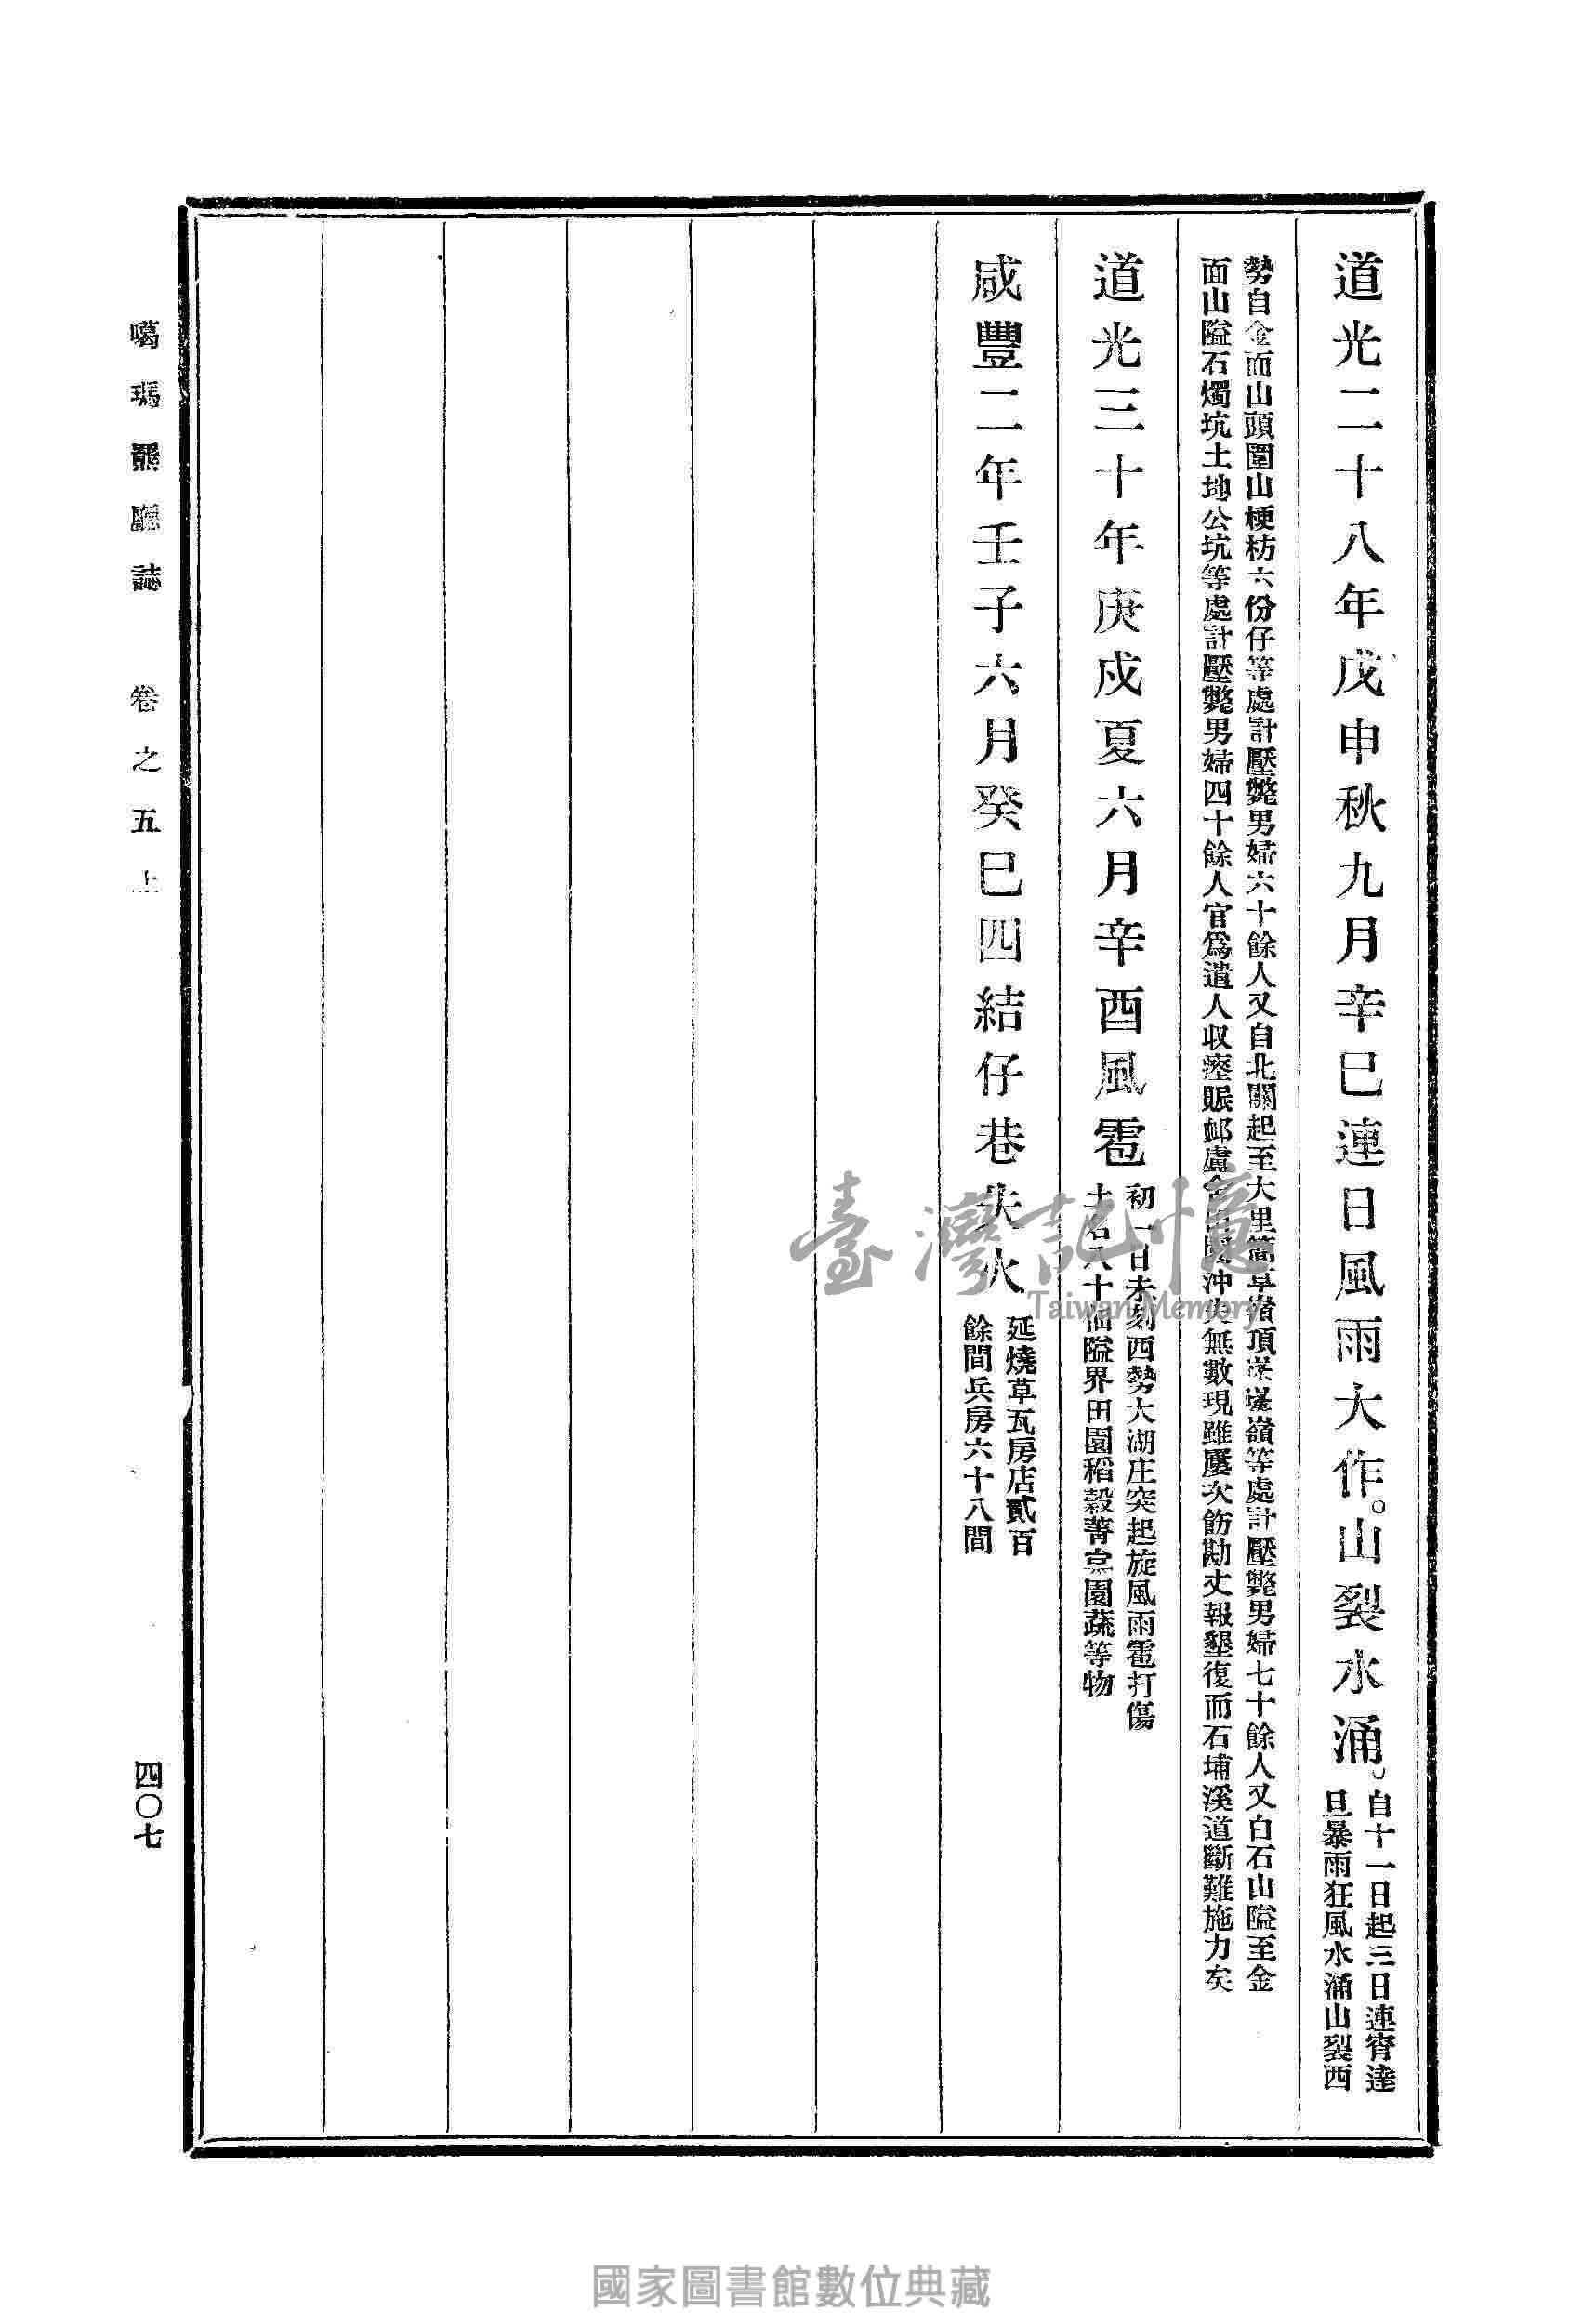 道光二十八年戊申秋九月辛巳連日風雨大作。山裂水涌。
自十一日起三日連宵達
旦暴雨狂風水涌山裂西
勢自金面山頭圍山梗枋六份仔等處計壓斃男婦六十餘人又自北關起至大里簡草嶺頂嶐嶐嶺等處計壓斃男婦七十餘人又白石山隘至金
面山隘石燭坑土地公坑等處計壓斃男婦四十餘人官為遣人収瘞賑䘏廬舍田園冲失無數現雖屢次飭勘丈報墾復而石埔溪道斷難施力矣
道光三十年庚戍夏六月辛酉風雹
初一日未刻西勢大湖庄突起旋風雨雹打傷
土名八十佃隘界田園稻穀菁靛園蔬等物
咸豐二年壬子六月癸巳四結仔巷失火
延燒草瓦房店貳百
餘間兵房六十八間
噶瑪羆廳誌 卷之五上
四〇七
臺灣記憶
Taiwan Memory
國家圖書館數位典藏